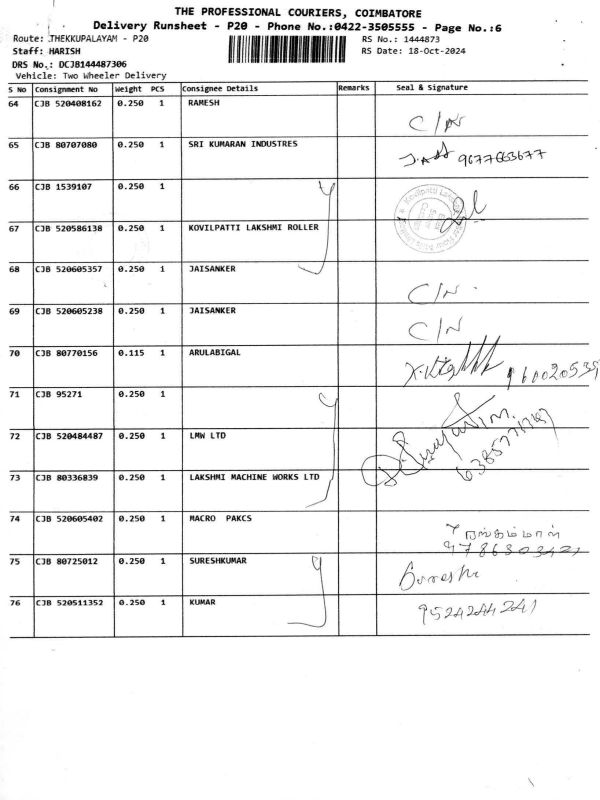 THE PROFESSIONAL COURIERS, COIMBATORE
Delivery Runsheet - P20 - Phone No.:0422-3505555 - Page No.:6
Route: THEKKUPALAYAM - P20 RS No.: 1444873
Staff: HARISH RS Date: 18-Oct-2024
DRS No.: DCJB144487306
Vehicle: Two Wheeler Delivery
S No Consignment No Weight PCS Consignee Details Remarks Seal & Signature
64 CJB 520408162 0.250 1 RAMESH C/N
65 CJB 80707080 0.250 1 SRI KUMARAN INDUSTRES 9677663677
66 CJB 1539107 0.250 1
67 CJB 520586138 0.250 1 KOVILPATTI LAKSHMI ROLLER
68 CJB 520605357 0.250 1 JAISANKER C/N
69 CJB 520605238 0.250 1 JAISANKER C/N
70 CJB 80770156 0.115 1 ARULABIGAL
71 CJB 95271 0.250 1
72 CJB 520484487 0.250 1 LMW LTD
73 CJB 80336839 0.250 1 LAKSHMI MACHINE WORKS LTD
74 CJB 520605402 0.250 1 MACRO PAKCS
75 CJB 80725012 0.250 1 SURESHKUMAR
76 CJB 520511352 0.250 1 KUMAR 9524244241